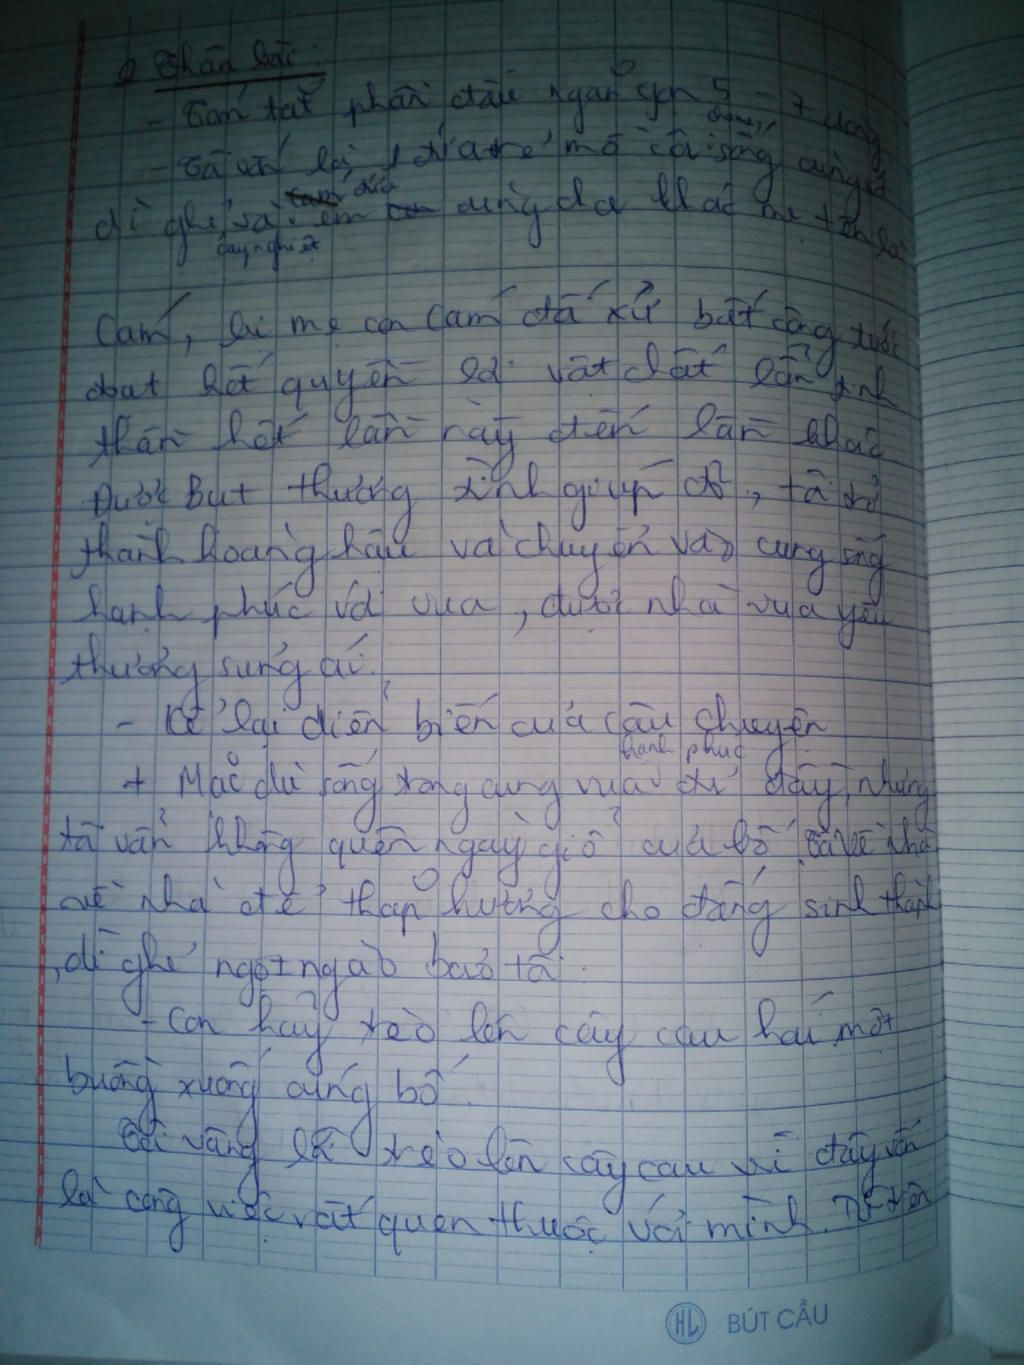 2 Thân bài:
- Tóm tắt phần đầu ngắn gọn 5 - 7 dòng
- Tôi vốn là 1 đứa trẻ mồ côi sống cùng
dì ghẻ và em cùng cha khác mẹ tên là
cay nghiệt
Cám, bị mẹ con Cám đã xử bất công tước
đoạt hết quyền lợi vật chất lẫn tinh
thần hết lần này đến lần khác
Được Bụt thương tình giúp đỡ, tôi trở
thành hoàng hậu và chuyển vào cung sống
hạnh phúc với vua, được nhà vua yêu
thương sủng ái.
- Kể lại diễn biến của câu chuyện
hạnh phúc
+ Mặc dù sống trong cung vua đủ đầy, nhưng
tôi vẫn không quên ngày giỗ của bố tôi về nhà
về nhà để thắp hương cho đấng sinh thành
, dì ghẻ ngọt ngào bảo tôi
- Con hãy trèo lên cây cau hái một
buồng xuống cúng bố.
Tôi vâng lời trèo lên cây cau vì đây vốn
là công việc rất quen thuộc với mình.
HL BÚT CẦU